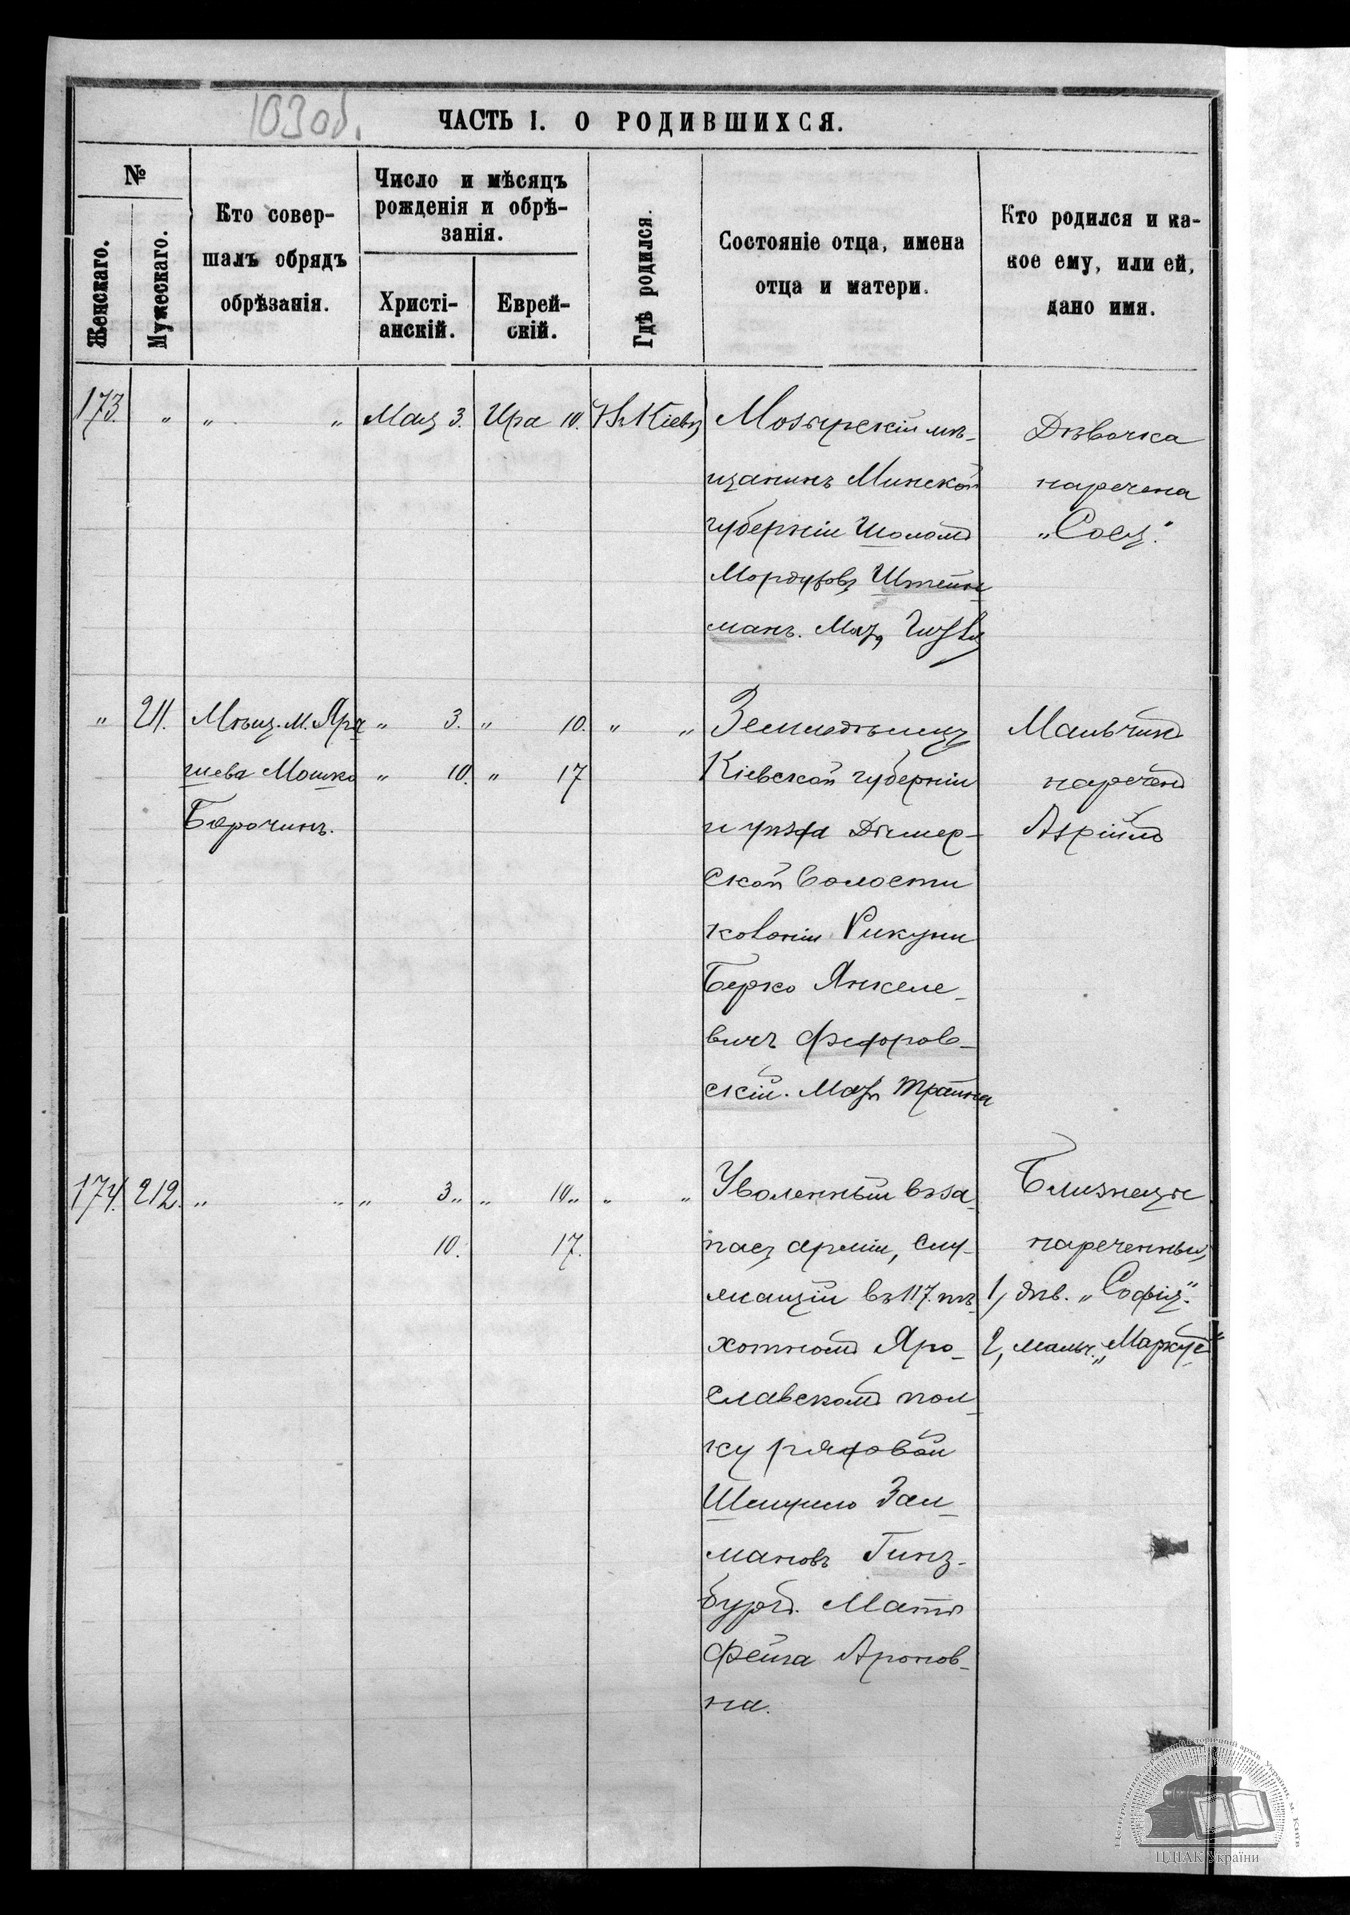 103об.
ЧАСТЬ I. О РОДИВШИХСЯ.
№
Женскаго.
Мужескаго.
Кто совер-
шалъ обрядъ
обрѣзанія.
Число и мѣсяцъ
рожденія и обрѣ-
занія.
Христі-
анскій.
Еврей-
скій.
Гдѣ родился.
Состояніе отца, имена
отца и матери.
Кто родился и ка-
кое ему, или ей,
дано имя.
173. " " " Мая 3. Ира 10. Въ Кіевѣ
Мозырскій мѣ-
щанинъ Минской
губерніи Шоломъ
Мордуховъ Штейн-
манъ. Мать
Дѣвочка
наречена
"Сося".
" 211. Мѣщ. м. Яры
шева Мошко
Борочинъ.
" 3. " 10. " "
" 10. " 17
Земледѣлецъ
Кіевской губерніи
и уѣзда Дымер-
ской волости
колоніи Рикуни
Берко Янкеле-
вичъ Федоров-
скій. Мать Трайна
Мальчикъ
нареченъ
174. 212. " " " 3. " 10. " "
10. 17.
Уволенный въ за-
пасъ арміи, слу-
жащій въ 117. пѣ-
хотномъ Яро-
славскомъ пол-
ку рядовой
Шмуило Зал-
мановъ Гинз-
бургъ. Мать
Фейга Аронов-
на.
Близнецы
нареченные,
1, дѣв. "Софія".
2, мальч. "Маркусъ"
ЦДІАК України